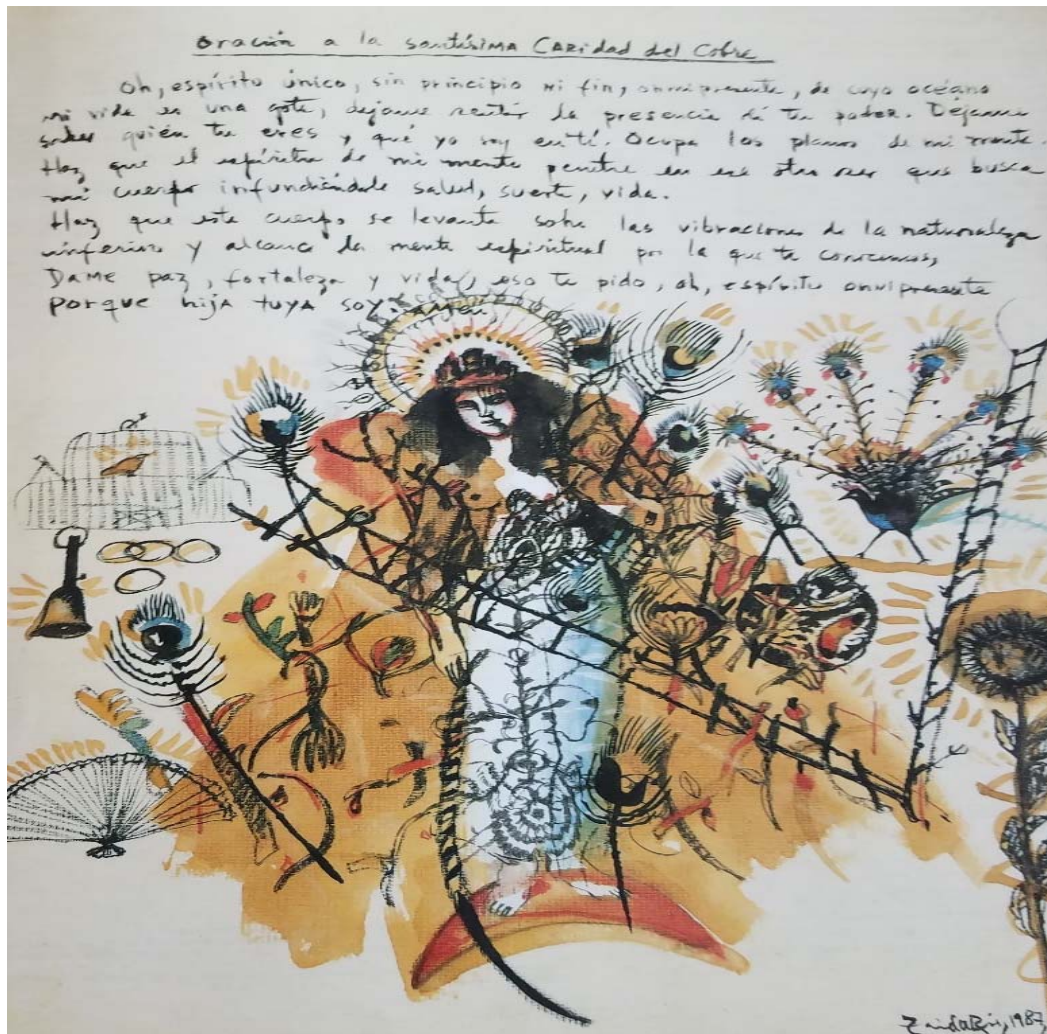 Oración a la santísima CARidad del Cobre
Oh, espírito único, sin principio ni fin, omnipresente, de cuyo océano
mi vida es una gota, dejame sentir la presencia de tu podER. Dejame
saber quién tu eres y qué yo soy en tí. Ocupa los planos de mi mente.
Haz que el espíritu de mi mente penitre en ese otro ser que busca
mi cuerpo infundiéndole salud, suerte, vida.
Haz que este cuerpo se levante sobre las vibraciones de la naturaleza
inferior y alcance la mente espiritual por la que te conocemos,
DAME paz, fortaleza y vida, eso te pido, oh, espíritu omnipresente
porque hija tuya soy. Amén
1987